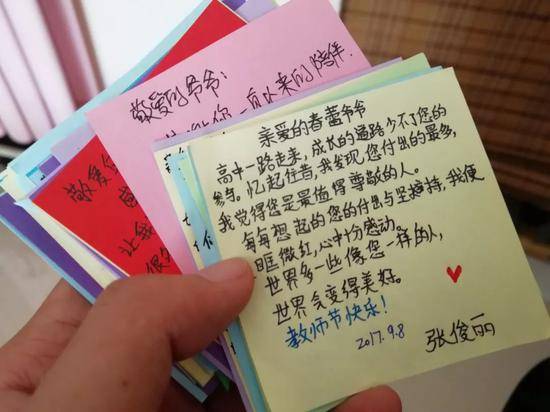 敬爱的爷爷:
一直以来的陪伴.
敬爱
让我
亲爱的春蕾爷爷
高中一路走来，成长的道路少不了您的
参与。忆起往昔，我发现您付出的最多，
我觉得您是最值得尊敬的人。
每每想起的您的付出与坚持，我便
眼眶微红，心中十分感动。
世界多一些像您一样的人，
世界会变得美好。
教师节快乐！
2017.9.8
张俊丽